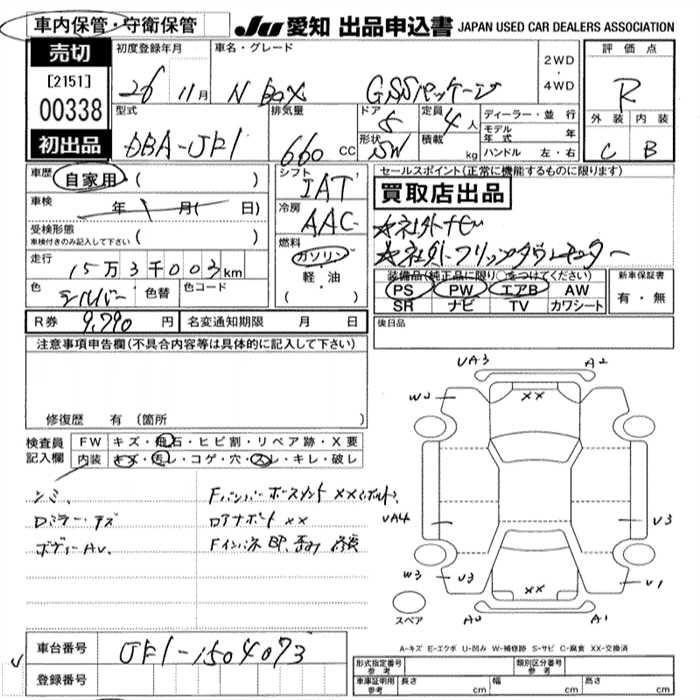 車内保管・守衛保管
JU 愛知 出品申込書 JAPAN USED CAR DEALERS ASSOCIATION
売切
[2151]
00338
初出品
初度登録年月
26 11月
車名・グレード
N BOX GSSパッケージ
2WD
・
4WD
評価点
R
外装 内装
C B
型式
DBA-JF1
排気量
660 cc
ドア 5
形状 SW
定員 4人
積載 kg
ディーラー・並行
モデル年式 年
ハンドル 左・右
車歴
自家用 ( )
車検
年 月( 日)
受検形態
車検付きのみ記入して下さい ( )
走行
15万3千003km
色 シルバー 色替 色コード
シフト
IAT
冷房
AAC
燃料
ガソリン
軽・油
( )
セールスポイント(正常に機能するものに限ります)
買取店出品
☆社外ナビ
☆社外フリップダウンモニター
装備品(純正品に限り○をつけてください)
PS PW エアB AW
SR ナビ TV カワシート
新車保証書
有・無
R券 9,790 円 名変通知期限 月 日
後日品
注意事項申告欄(不具合内容等は具体的に記入して下さい)
修復歴 有 (箇所 )
検査員記入欄
FW キズ・飛石・ヒビ割・リペア跡・X要
内装 キズ・汚レ・コゲ・穴・スレ・キレ・破レ
シミ
Dミラーキズ
ボディーAU
Fバンパーホースメント XX(ボルト)
ロアナポート XX
Fインパネ
UA3
A2
W2
XX
UA4
U3
W3
U3
XX
U1
A2
A1
スペア
A-キズ E-エクボ U-凹み W-補修跡 S-サビ C-腐食 XX-交換済
車台番号 JF1-1504073
登録番号
形式指定番号 参考
類別区分番号 参考
車庫証明用 参考 長さ cm 幅 cm 高さ cm